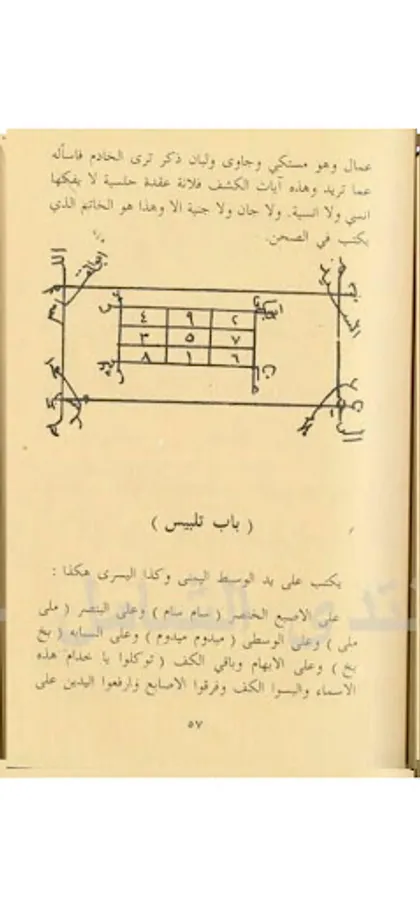 عمال وهو مستكي وجاوى ولبان ذكر ترى الخادم فاسأله
عما تريد وهذه آيات الكشف فلانة عقدة جلسية لا يفكها
انسي ولا انسية. ولا جان ولا جنية الا وهذا هو الخاتم الذي
يكتب في الصحن.
٤ ٩ ٢
٣ ٥ ٧
٨ ١ ٦
( باب تلبيس )
يكتب على يد الوسط اليمنى وكذا اليسرى هكذا :
على الاصبع الخنصر ( سام سام ) وعلى البنصر ( ملى
ملى ) وعلى الوسطى ( ميدوم ميدوم ) وعلى السبابه ( بخ
بخ ) وعلى الابهام وباقي الكف ( توكلوا يا خدام هذه
الاسماء والبسوا الكف وفرقوا الاصابع وارفعوا اليدين على
٥٧